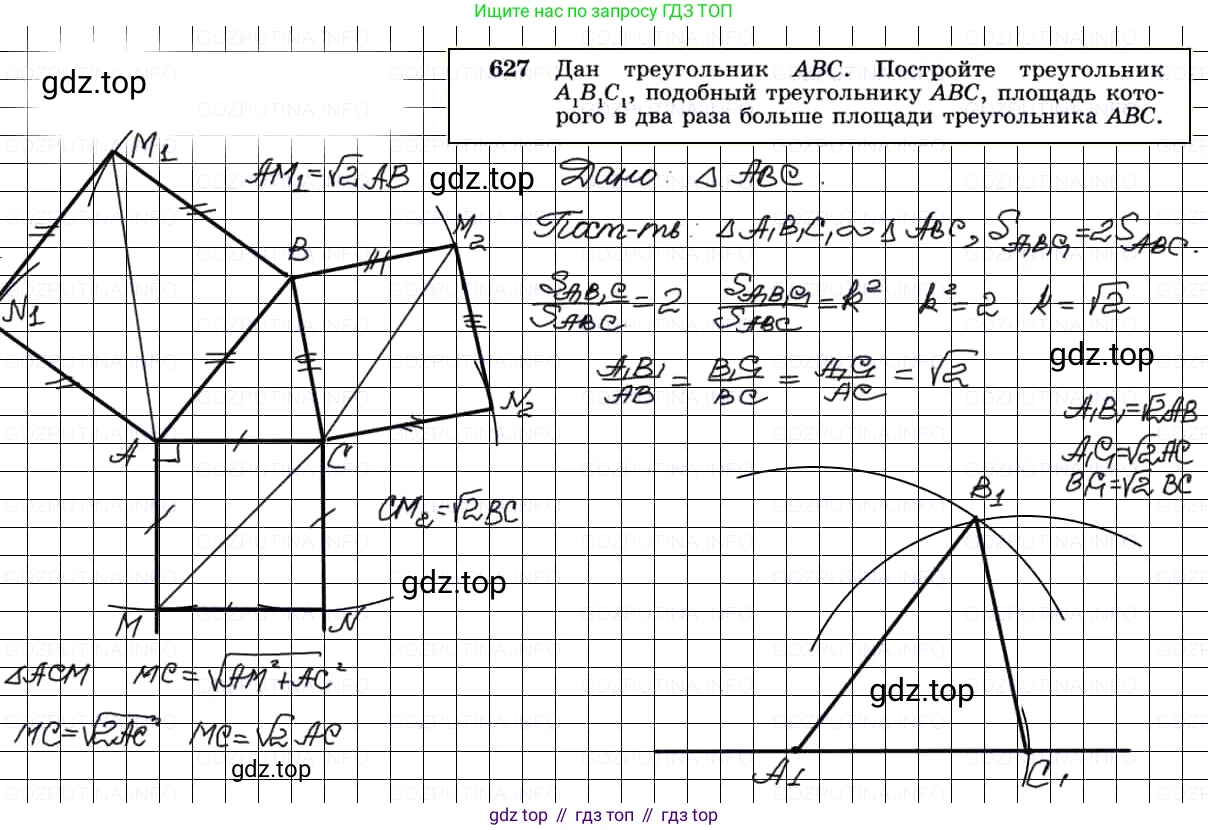 Ищите нас по запросу ГДЗ ТОП
627 Дан треугольник ABC. Постройте треугольник
A₁B₁C₁, подобный треугольнику ABC, площадь кото-
рого в два раза больше площади треугольника ABC.
gdz.top
M₁
AM₁=√2 AB
gdz.top
Дано: △ ABC.
M₂
Пост-ть: △ A₁B₁C₁ ∾ △ ABC, S_A₁B₁C₁ = 2S_ABC.
B
N₁
S_A₁B₁C₁/S_ABC = 2 S_A₁B₁C₁/S_ABC = k² k² = 2 k = √2
gdz.top
A₁B₁/AB = B₁C₁/BC = A₁C₁/AC = √2
N₂
A₁B₁=√2AB
A₁C₁=√2AC
B₁C₁=√2 BC
A
C
B₁
CM₂=√2BC
gdz.top
M
N
△ACM MC = √AM²+AC²
gdz.top
MC=√2AC² MC=√2 AC
gdz.top
A₁
C₁
gdz топ // гдз топ // гдз top
GDZPUTINA.INFO